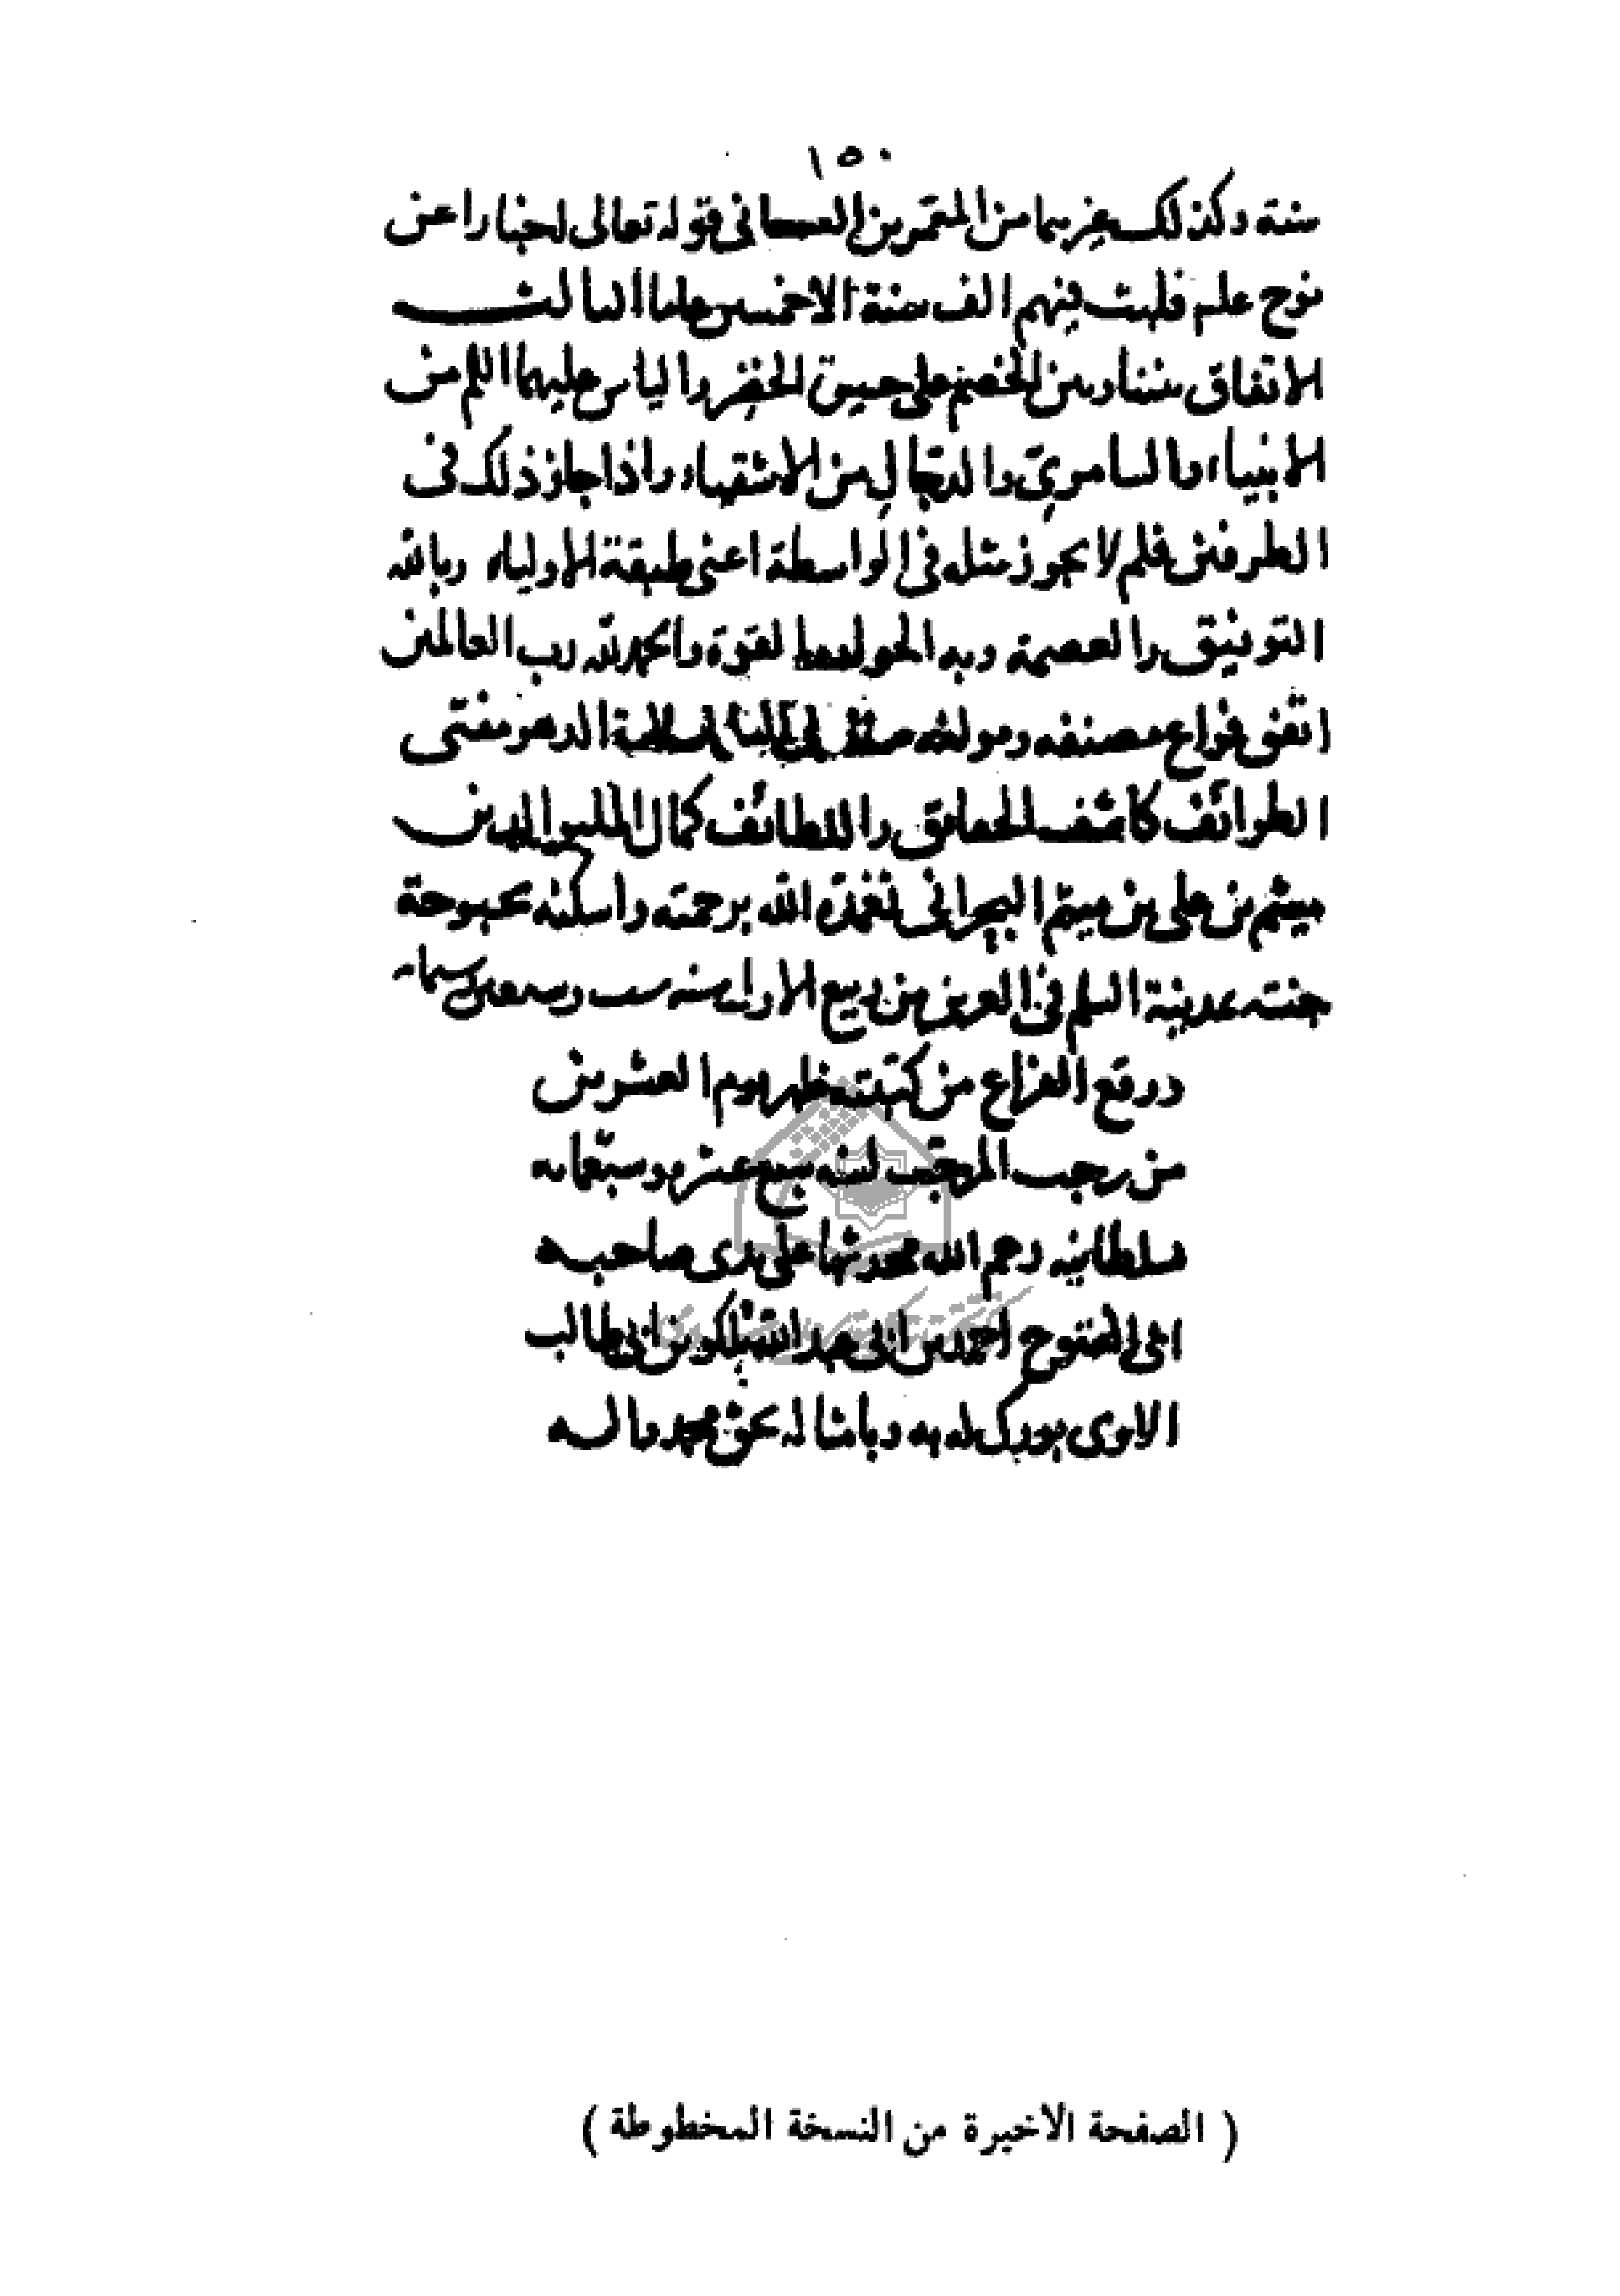 ١٥٠
سنة وكذلك غيرهما من المعمرين الثانى قوله تعالى اخبارا عن
نوح علم فلبث فيهم الف سنة الا خمسين عاما الثالث
الاتفاق بيننا وبين الخصم على حيوة الخضر والياس عليهما السلم من
الانبياء والسامرى والدجال من الاشقياء واذا جاز ذلك فى
الطرفين فلم لا يجوز مثله فى الواسطة اعنى طبقة الاولياء وبالله
التوفيق والعصمة وبه الحول والقوة والحمد لله رب العالمين
اتفق فراغ مصنفه ومولفه الدهر مفتى
الطوائف كاشف الحقائق واللطائف كمال الملة والدين
ميثم بن على بن ميثم البحرانى تغمده الله برحمته واسكنه بحبوحة
جنته بمدينة السلم فى العشرين من ربيع الاول سنه ست وسبعين وستمائه
ووقع الفراغ من كتبته ظهر يوم العشرين
من رجب المرجب لسنه سبع عشر وسبعمائه
بسلطانيه رحم الله على يدى صاحبه
ابى الفتوح احمد بن ابى عبد الله بلكو بن ابى طالب
الاوى بورك له به وبامثاله بحق محمد واله
( الصفحة الاخيرة من النسخة المخطوطة )